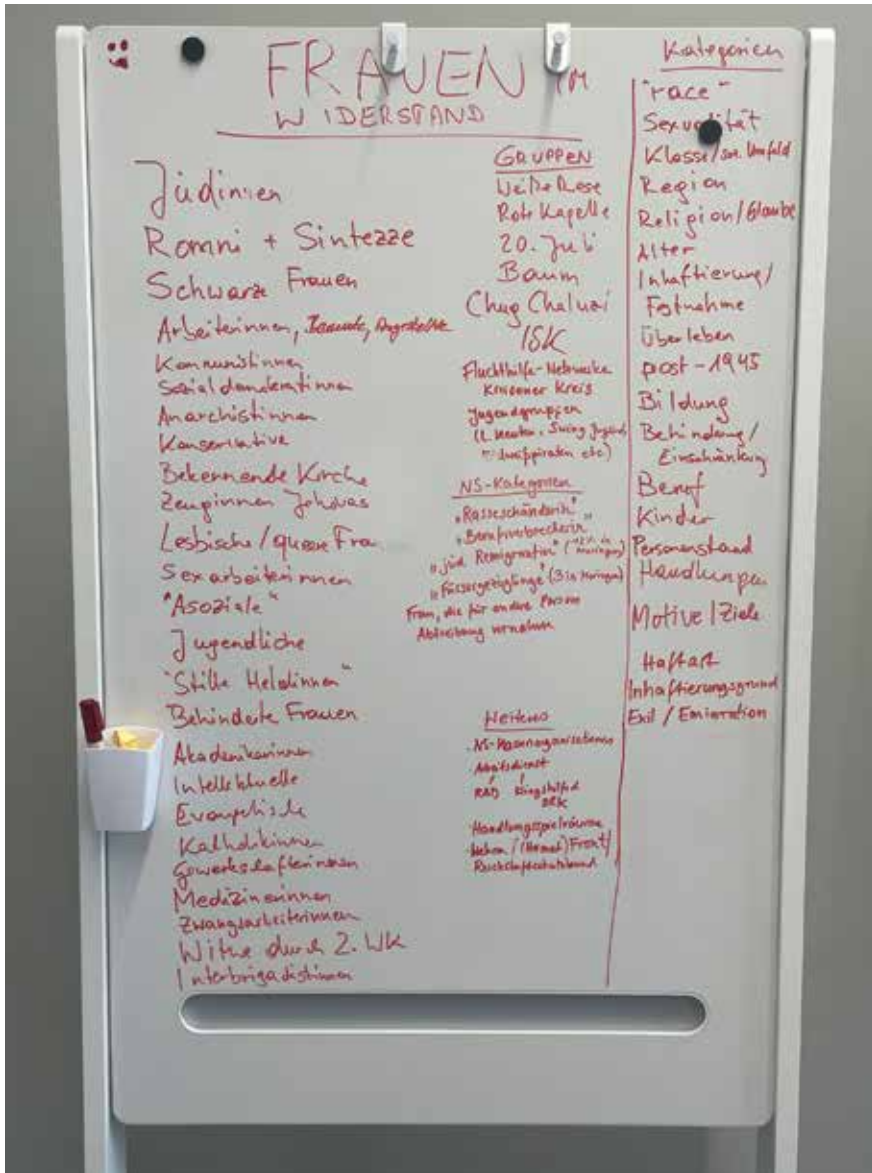 FRAUEN IM
WIDERSTAND
Jüdinnen
Romni + Sintezze
Schwarze Frauen
Arbeiterinnen, Beamte, Angestellte
Kommunistinnen
Sozialdemokratinnen
Anarchistinnen
Konservative
Bekennende Kirche
Zeuginnen Jehovas
Lesbische/queere Frau
Sexarbeiterinnen
"Asoziale"
Jugendliche
"Stille Heldinnen"
Behinderte Frauen
Akademikerinnen
Intellektuelle
Evangelische
Katholikinnen
Gewerkschafterinnen
Medizinerinnen
Zwangsarbeiterinnen
Witwe durch 2. WK
Interbrigadistinnen
GRUPPEN
Weiße Rose
Rote Kapelle
20. Juli
Baum
Chug Chaluzi
ISK
Fluchthilfe-Netzwerke
Kreisauer Kreis
Jugendgruppen
Swing Jugend,
etc)
NS-Kategorien
"Rasseschänderin"
"Berufsverbrecherin"
"jüd. Remigrantin" (in Moringen)
(3 in Moringen)
Frauen, die für andere Person
Abtreibung vornahmen
Weiteres
Arbeitsdienst
RAD Kriegshilfsd
DRK
Handlungsspielräume
(Heimat)Front/
Reichsluftschutzbund
Kategorien
"race"
Sexualität
Klasse/soz. Umfeld
Region
Religion/Glaube
Alter
Inhaftierung/
Festnahme
Überleben
post-1945
Bildung
Behinderung/
Einschränkung
Beruf
Kinder
Personenstand
Handlungen
Motive/Ziele
Haftart
Inhaftierungsgrund
Exil / Emigration